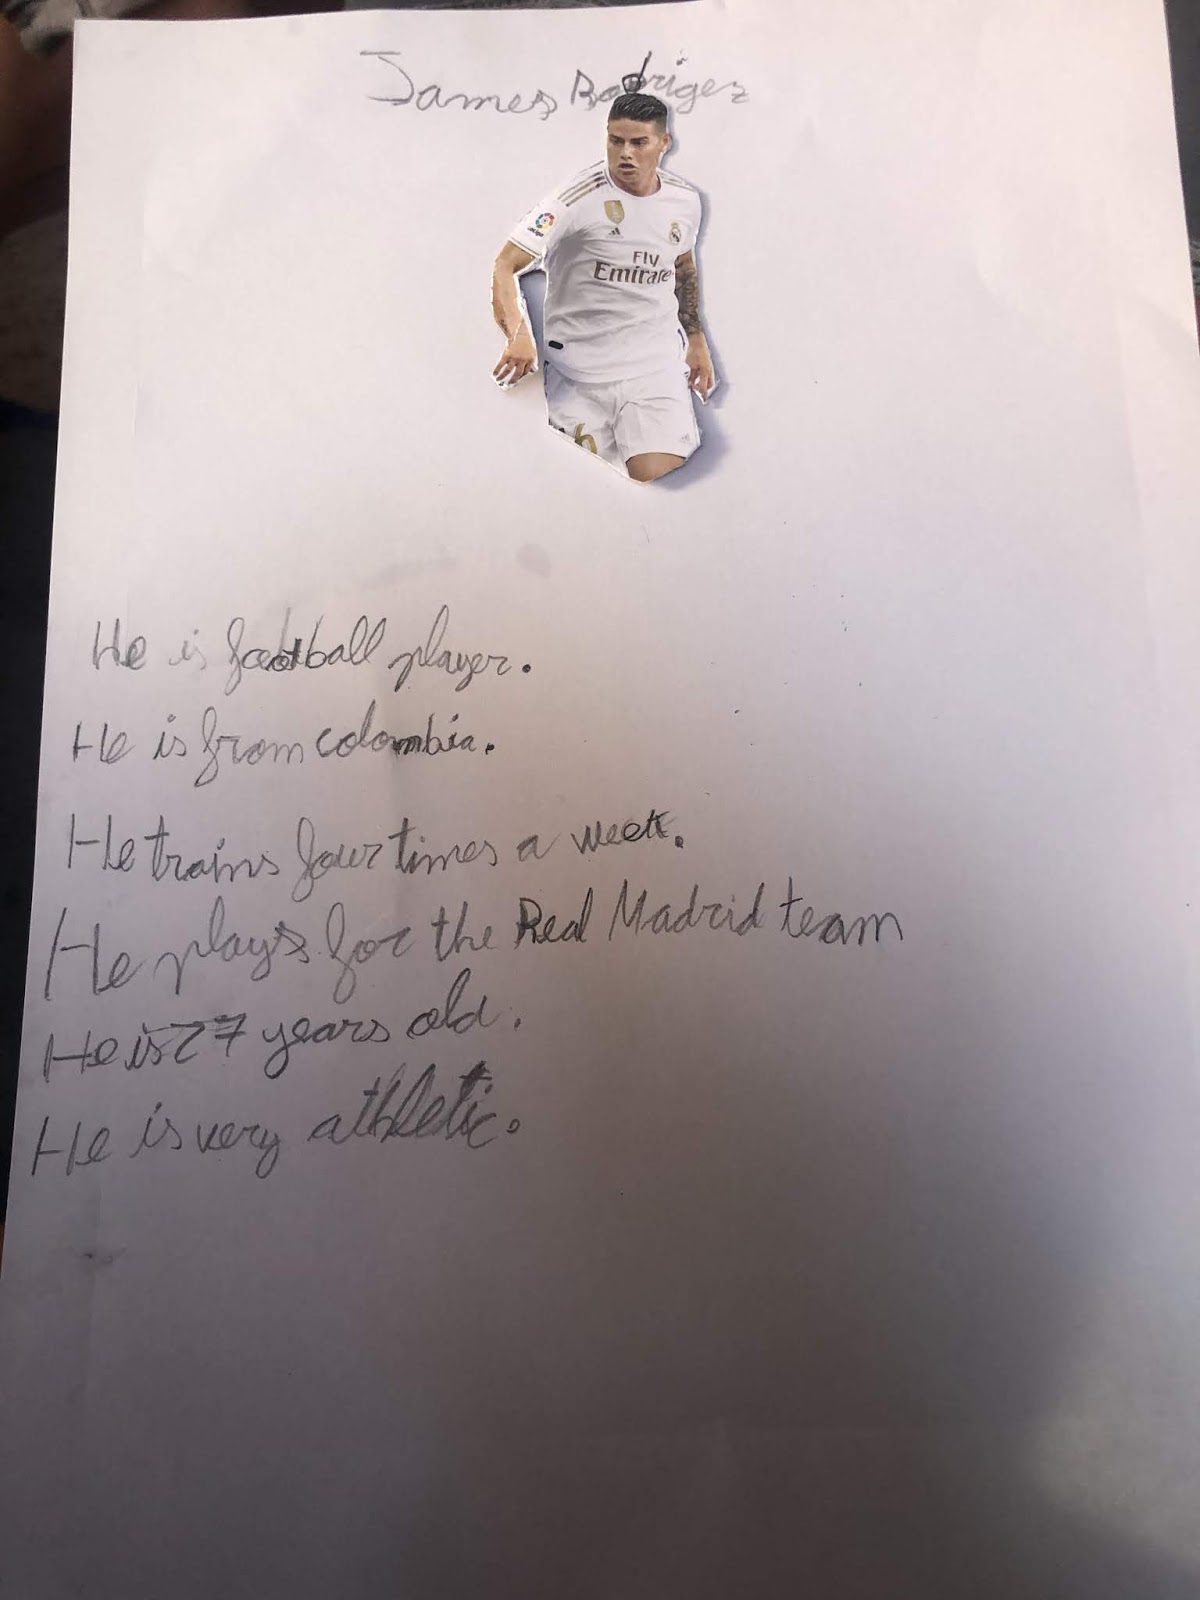 James Rodrigez
FIV
Emirate
He is football player.
He is from colombia.
He trains four times a week.
He plays for the Real Madrid team
He is 27 years old.
He is very athletic.